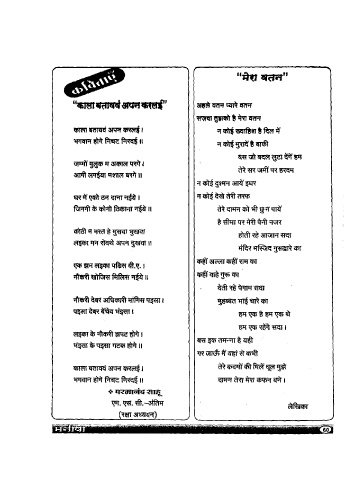 कविताएं
"काला बताववं अपन करलई"
काला बताववं अपन करलई।
भगवान होगे निचट निरदई॥
जम्मों मुलुक म अकाल परगे।
आगी लगईया मशाल बरगे॥
घर में एको ठन दाना नईये।
जिनगी के कोनो ठिकाना नईये॥
कोठी म भरत हे मुसवा भुखवा
लइका मन रोवथे अपन दुखवा॥
एक झन लइका पढ़िस बी.ए.।
नौकरी खोजिस मिलिस नईये॥
नौकरी देबर अधिकारी मांगिस पइसा।
पइसा देबर बेचेंव भंइसा।
लइका के नौकरी झपट होगे।
भंइसा के पइसा गटक होगे॥
काला बतावयं अपन करलई।
भगवान होगे निचट निरदई॥
परमानंद साहू
एम. एस. सी.-अंतिम
(रक्षा अध्ययन)
"मेरा वतन"
अहले वतन प्यारे वतन
सजदा तुझको है मेरा वतन
न कोई ख्वाहिश है दिल में
न कोई मुरादें है बाकी
बस जो बदल लुटा देंगें हम
तेरे सर जमीं पर हरदम
न कोई दुश्मन आये इधर
न कोई देखे तेरी तरफ
तेरे दामन को भी छुन पायें
है सीमा पर मेरी पैनी नजर
होती रहे आजान सदा
मंदिर मस्जिद गुरूद्वारे का
कहीं अल्ला कहीं राम का
कहीं वाहे गुरू का
देती रहे पैगाम सदा
मुहब्बत भाई चारे का
हम एक है हम एक थे
हम एक रहेंगे सदा।
बस इक तमन्ना है यही
गर जाऊँ मैं यहां से कभी
तेरे कदमों की मिलें धूल मुझे
दामन तेरा मेरा कफन बने।
लेखिका
मनीषा
60